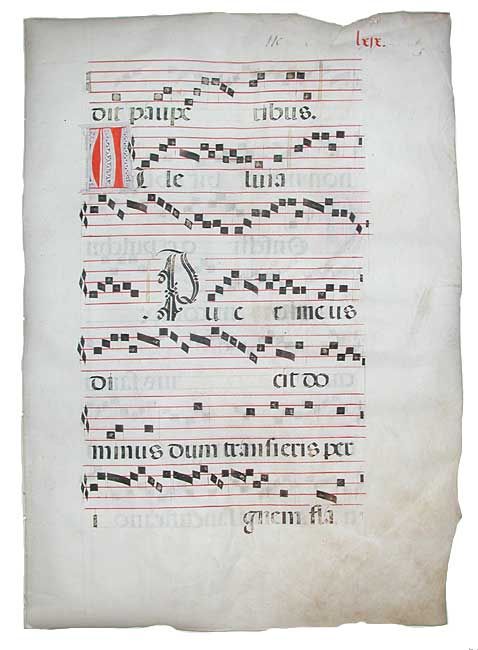 lxix.
dit paupe ribus.
Alle luia
. Pue r meus
di cit do
minus dum transieris per
i gnem fla